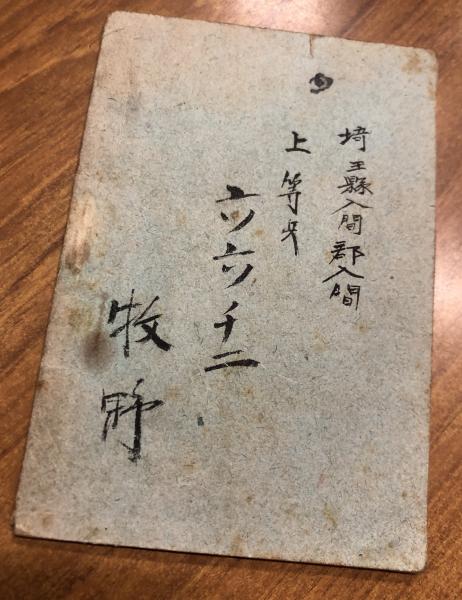 埼玉縣入間郡入間
上等兵
六六チ二
牧野